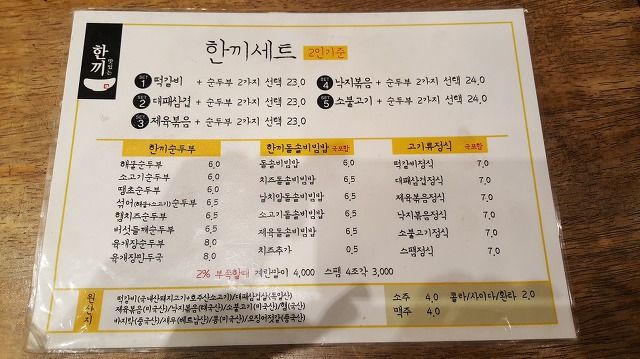 한끼
맛있는
한끼세트 2인기준
SET 1 떡갈비 + 순두부 2가지 선택 23,0
SET 2 대패삼겹 + 순두부 2가지 선택 23,0
SET 3 제육볶음 + 순두부 2가지 선택 23,0
SET 4 낙지볶음 + 순두부 2가지 선택 24,0
SET 5 소불고기 + 순두부 2가지 선택 24,0
한끼순두부
해물순두부 6,0
소고기순두부 6,0
땡초순두부 6,0
섞어(해물+소고기)순두부 6,5
햄치즈순두부 6,5
버섯들깨순두부 6,5
육개장순두부 8,0
육개장만두국 8,0
한끼돌솥비빔밥 국포함
돌솥비빔밥 6,0
치즈돌솥비빔밥 6,5
날치알돌솥비빔밥 6,5
소고기돌솥비빔밥 6,5
제육돌솥비빔밥 6,5
치즈추가 0,5
고기류정식 국포함
떡갈비정식 7,0
대패삼겹정식 7,0
제육볶음정식 7,0
낙지볶음정식 7,0
소불고기정식 7,0
스팸정식 7,0
2% 부족할때 계란말이 4,000 스팸 4조각 3,000
원산지
떡갈비(국내산돼지고기+호주산소고기)/대패삼겹살(독일산)
제육볶음(미국산)/낙지볶음(태국산)/소불고기(미국산)/햄(국산)
바지락(중국산)/새우(베트남산)/콩(미국산)/오징어젓갈(중국산)
소주 4,0 콜라/사이다/환타 2,0
맥주 4,0